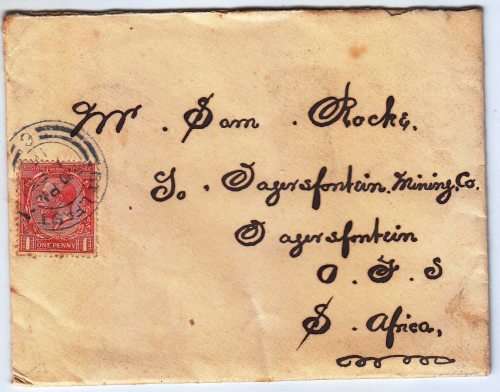 Mr. Sam. Rocke.
To. Jagersfontein. Mining. Co.
Jagersfontein
O. F. S
S. Africa,
ONE PENNY